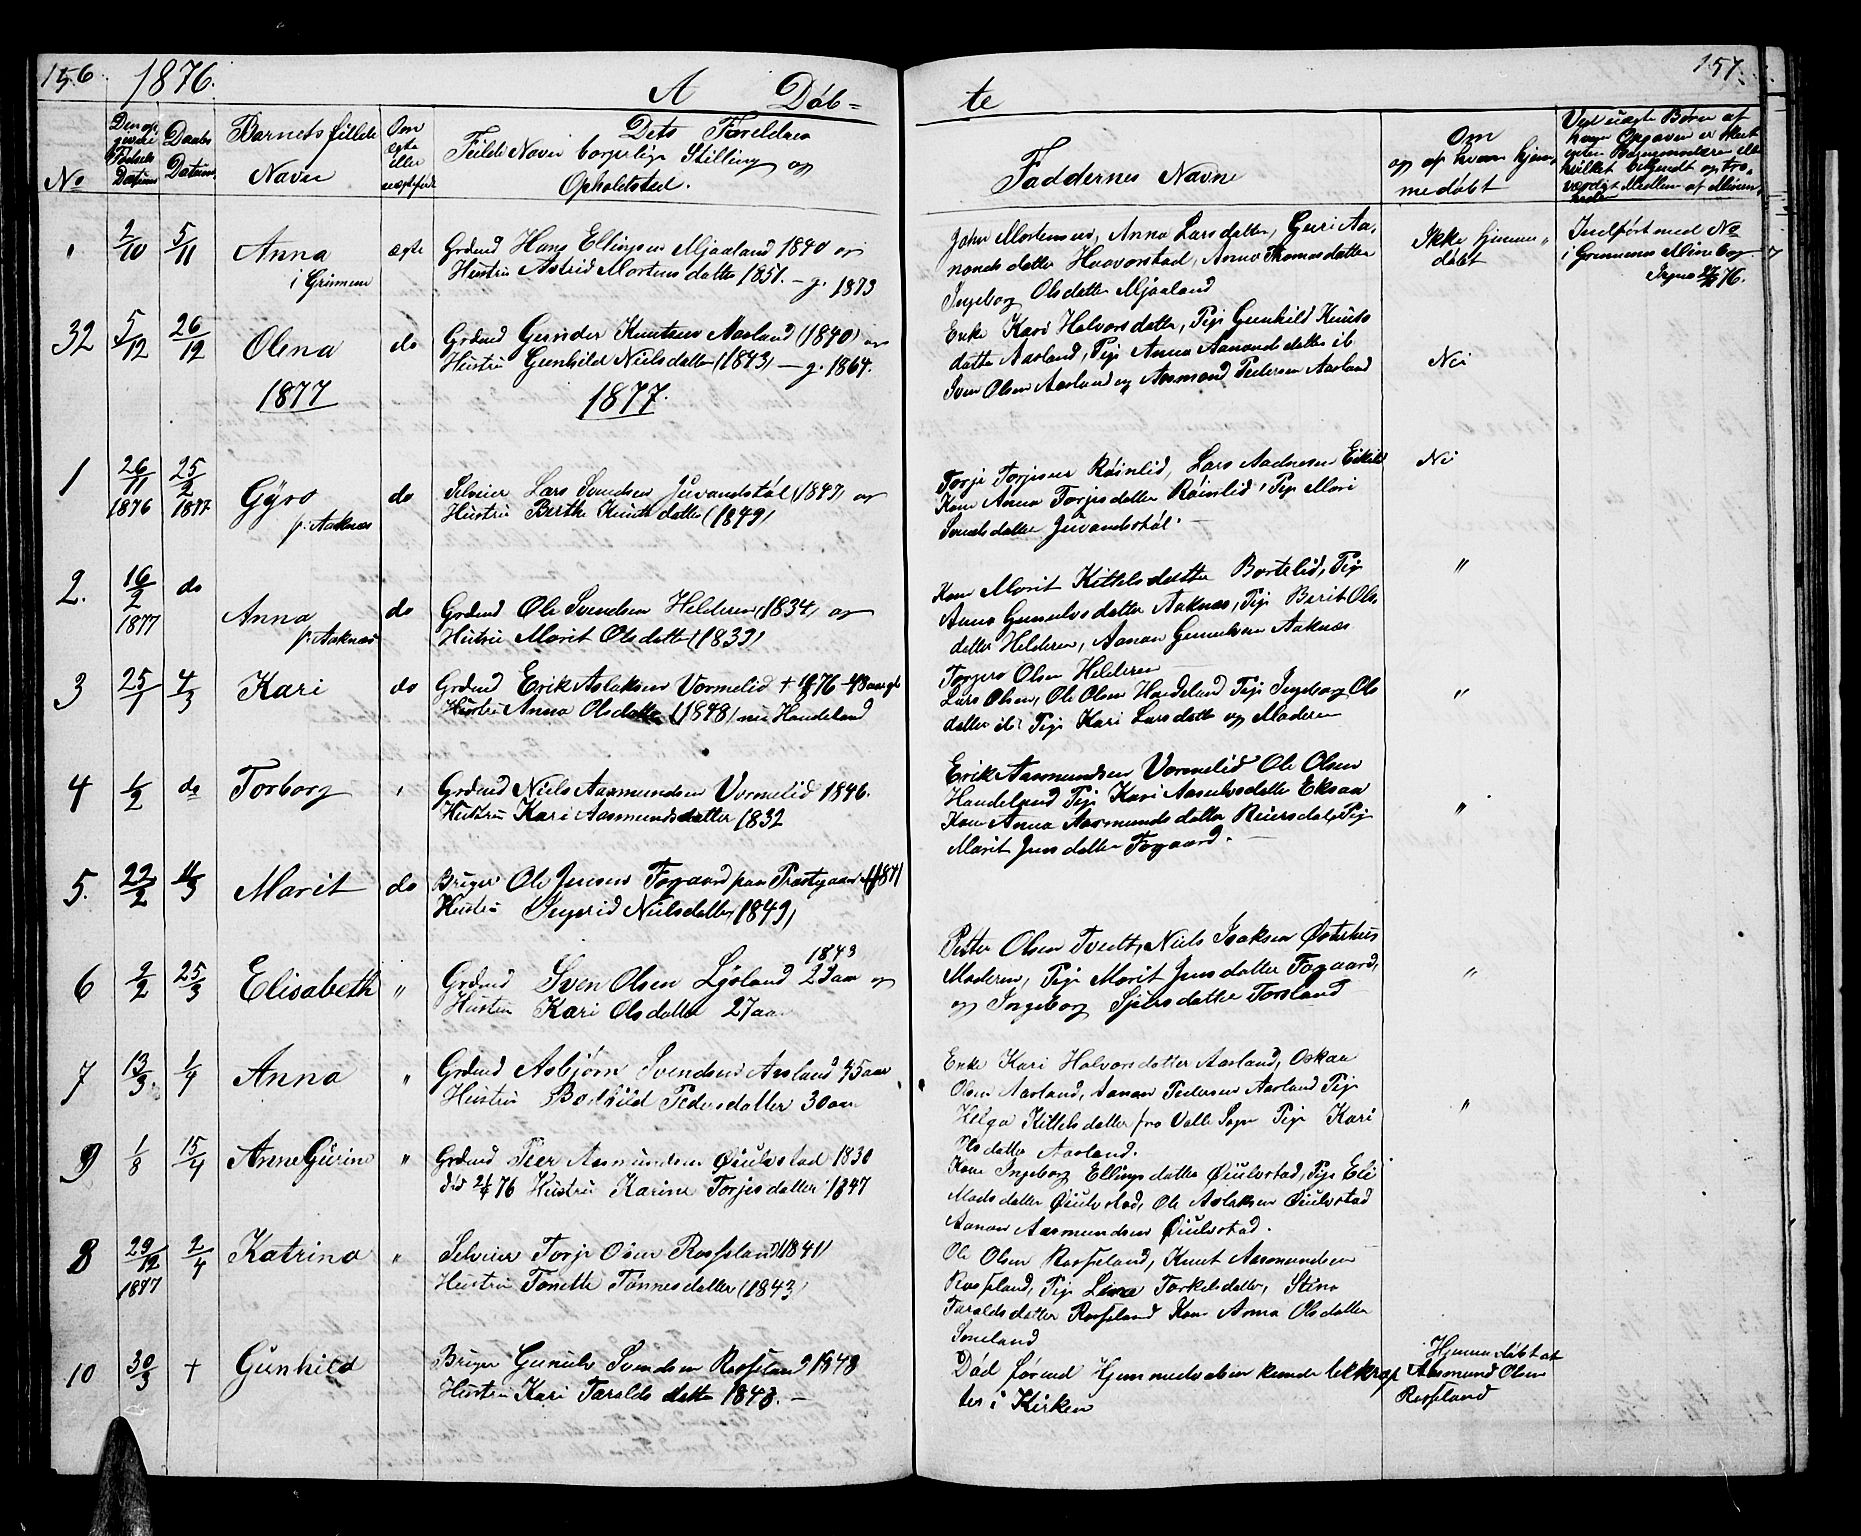 156. 1876. A Døb=
te 157.
No
Den op-
givne
Fødsels
Datum
Daabs
Datum
Barnets fulde
Navn
Om
ægte
eller
uægtefødt
Dets Foreldres
Fulde Navn borgerlige Stilling og
Opholdsted.
Faddernes Navne
Om
og af hvem hjem-
medøbt
Ved uægte Børn af
2/10 5/11 Anna
i Grinnem
ægte
Grdmd Hans Ellingsen Mjaaland 1840 og
Hustru Astrid Mortensdatter 1851. – g. 1873
John Mortensen, Anna Larsdatter, Guri Aa-
nonsdatter Haaverstad, Anna Thomasdatter
Ingeborg Olsdatter Mjaaland
Ikke hjemme-
døbt
Indført med No 7
i Grinnems Min. bog
32 5/12 26/12 Olena do
Grdmd Gunder Knutsen Aasland (1840) og
Hustru Gunhild Nielsdatter (1843) – g. 1864.
Enke Kari Halvorsdatter, Pige Gunhild Knuts
datter Aasland, Pige Anna Aanonsdatter ib
Sven Olsen Aasland og Aasmond Pedersen Aasland
Nei
1877 1877.
1 26/11 1876 25/2 1877 Gyro
p. Aaknæs
do
Selveier Lars Svendsen Juvandstøl (1847) og
Hustru Berthe Knutsdatter (1849)
Torje Torjesen Røinlid, Lars Aadnesen
Kone Anna Torjesdatter Røinlid, Pige Mari
Svensdatter Juvandstøl. –
Nei
2. 16/2 1877 do Anna
p. Aaknæs
do
Grdmd Ole Svendsen Helderen (1834) og
Hustru Marit Olsdatter (1833)
Kone Marit Kittelsdatter Bortelid, Pige
Anna Gunulvsdatter Aaknæs, Pige Berit Ols
datter Helderen, Aanon Gunulvsen Aaknæs
Torgers Olsen Helderen
"
3 25/1 4/3 Kari do
Grdmd Erik Aslaksen Vormelid + 76 – 48 aar gl
Hustru Anna Olsdatter (1848) née Handeland
Lars Olsen, Ole Olsen Handeland Pige Ingeborg Ols
datter ib: Pige Kari Larsdatter og Moderen
"
4 1/2 do Torborg
Grdmd Niels Aasmundsen Vormelid 1846.
Hustru Kari Aasmundsdatter 1832
Erik Aasmundsen Vormelid Ole Olsen
Handeland Pige Kari Aasulvsdatter Eksaa
Kone Anna Aasmundsdatter Reiersdal, Pige
Marit Jensdatter Fogaard. –
"
5. 22/2 11/3 Marit do
Bruger Ole Jensen Fogaard paa Præstgaard
Hustru Sigrid Nielsdatter 1849)
6 2/2 25/3 Elisabeth "
1843
Grdmd Sven Olsen Ljosland 23 aar og
Hustru Kari Olsdatter 27 aar
Petter Olsen Tveit, Niels Isaksen Østerhus
Moderen, Pige Marit Jensdatter Fogaard,
og Ingeborg Sjursdatter Torsland
"
7 13/3 1/4 Anna "
Grdmd Asbjørn Svendsen Aasland 45 aar
Hustru Bolhild Pedersdatter 30 aar
Enke Kari Halvorsdatter Aasland, Oskau
Olsen Aasland, Aanon Pedersen Aasland Pige
Helga Kittelsdatter fra Valle Sogn Pige Kari
Olsdatter Aasland.
"
9 1/8 15/4 Anne Gurine "
Grdmd Peer Aasmundsen Øiulvstad 1830
død 76 Hustru Karine Torjesdatter 1847
Kone Ingeborg Ellingsdatter Øiulvstad, Pige Eli
Madsdatter Øiulvstad, Ole Aslaksen Øiulvstad
Aanon Aasmundsen Øiulvstad.
8 29/12 1877 2/4 Katrina "
Selveier Torje Osen Rosseland (1841)
Hustru Tonette Tønnesdatter (1843)
Ole Olsen Rosseland, Knut Aasmundsen
Rosseland, Pige Lina Torkelsdatter, Stina
Taraldsdatter Rosseland Kone Anna Olsdatter
Soneland
10 30/3 + Gunhild
Bruger Gunulv Svendsen Rosseland 1848
Hustru Kari Taraldsdatter 1843. –
Død førend Hjemmedaaben kunde bekræf
tes i Kirken
Hjemmedøbt af
Aasmund Olsen
Rosseland